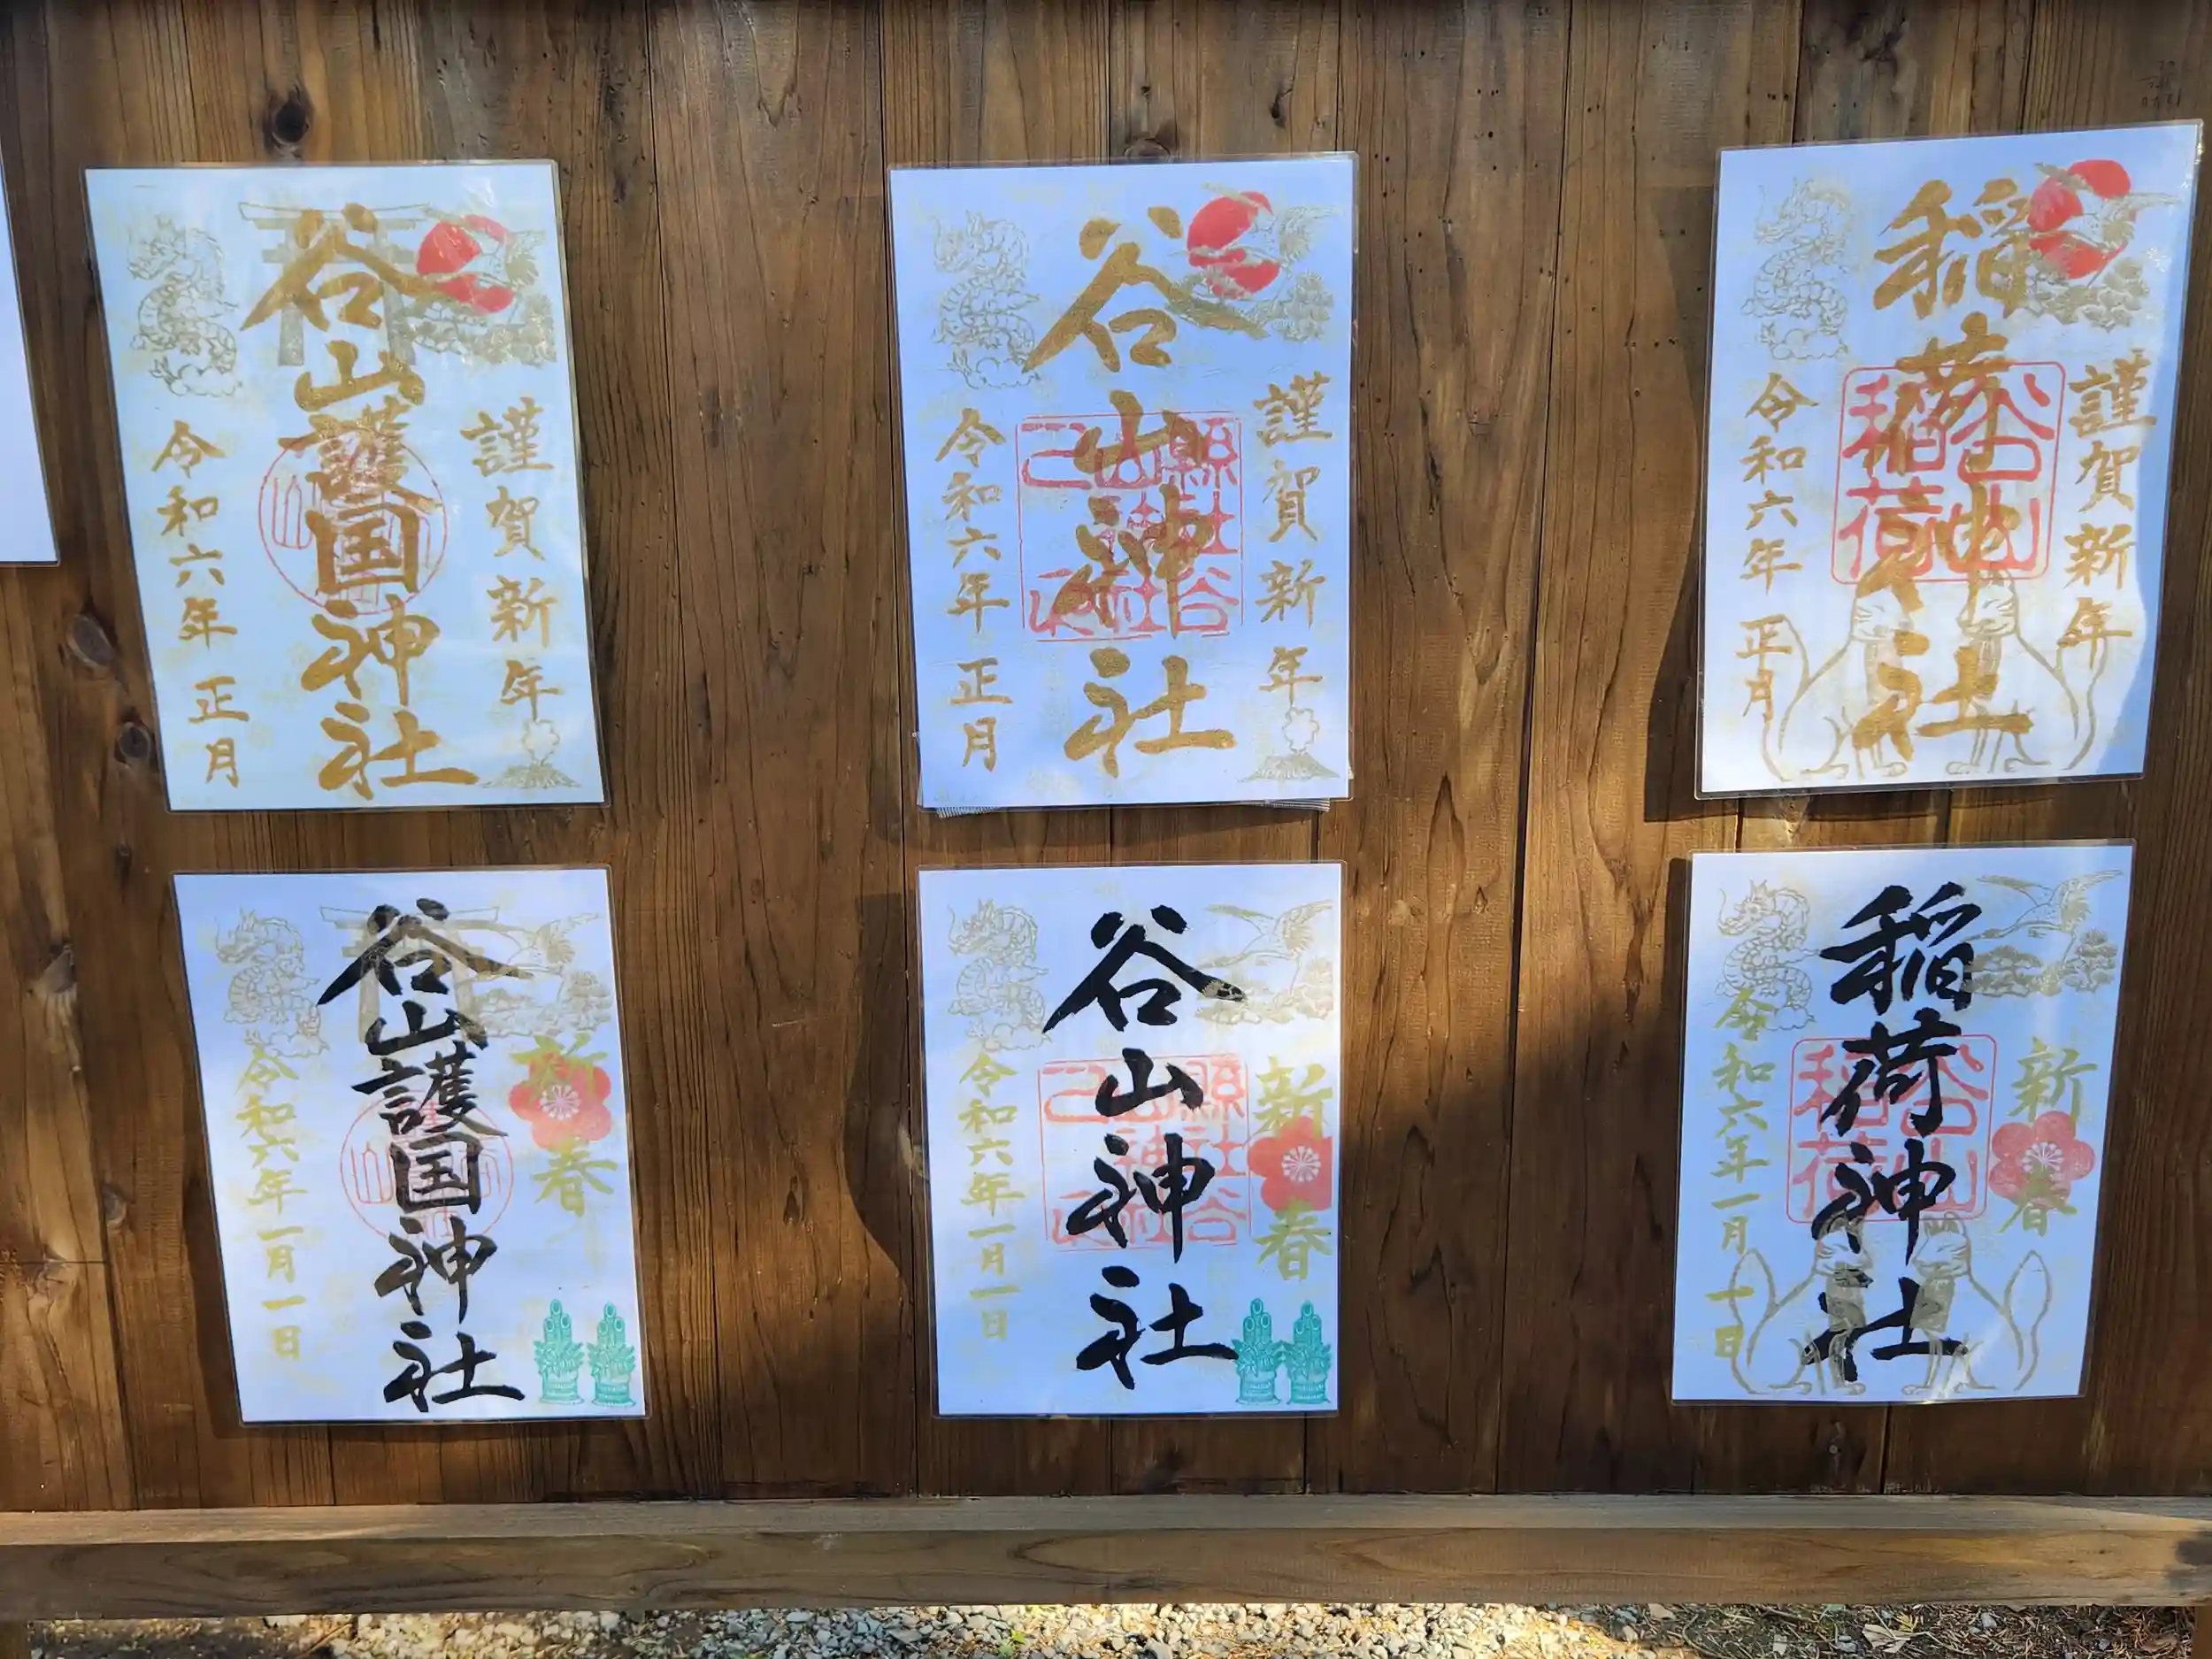 謹賀新年
谷山護国神社
令和六年 正月
謹賀新年
谷山神社
令和六年 正月
謹賀新年
稲荷神社
谷山
稲荷
令和六年 正月
新春
谷山護国神社
令和六年一月一日
新春
谷山神社
令和六年一月一日
新春
稲荷神社
谷山
稲荷
令和六年一月一日